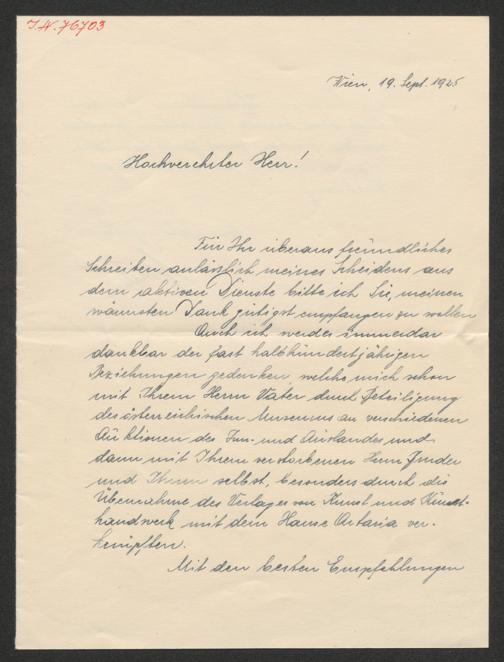 I.N. 76703
Wien, 19. Sept. 1925
Hochverehrter Herr!
Für Ihr überaus freundliches
Schreiben anlässlich meines Scheidens aus
dem aktiven Dienste bitte ich Sie, meinen
wärmsten Dank gütigst empfangen zu wollen
Auch ich werde immerdar
dankbar der fast halbhundertjährigen
Beziehungen gedenken welche mich schon
mit Ihrem Herrn Vater durch Beteiligung
des österreichischen Museums an verschiedenen
Auktionen des In- und Auslandes und
dann mit Ihrem verstorbenen Herrn Bruder
und Ihnen selbst, besonders durch die
Übernahme des Verlages von Kunst und Kunst-
handwerk mit dem Hause Artaria ver-
knüpften.
Mit den besten Empfehlungen